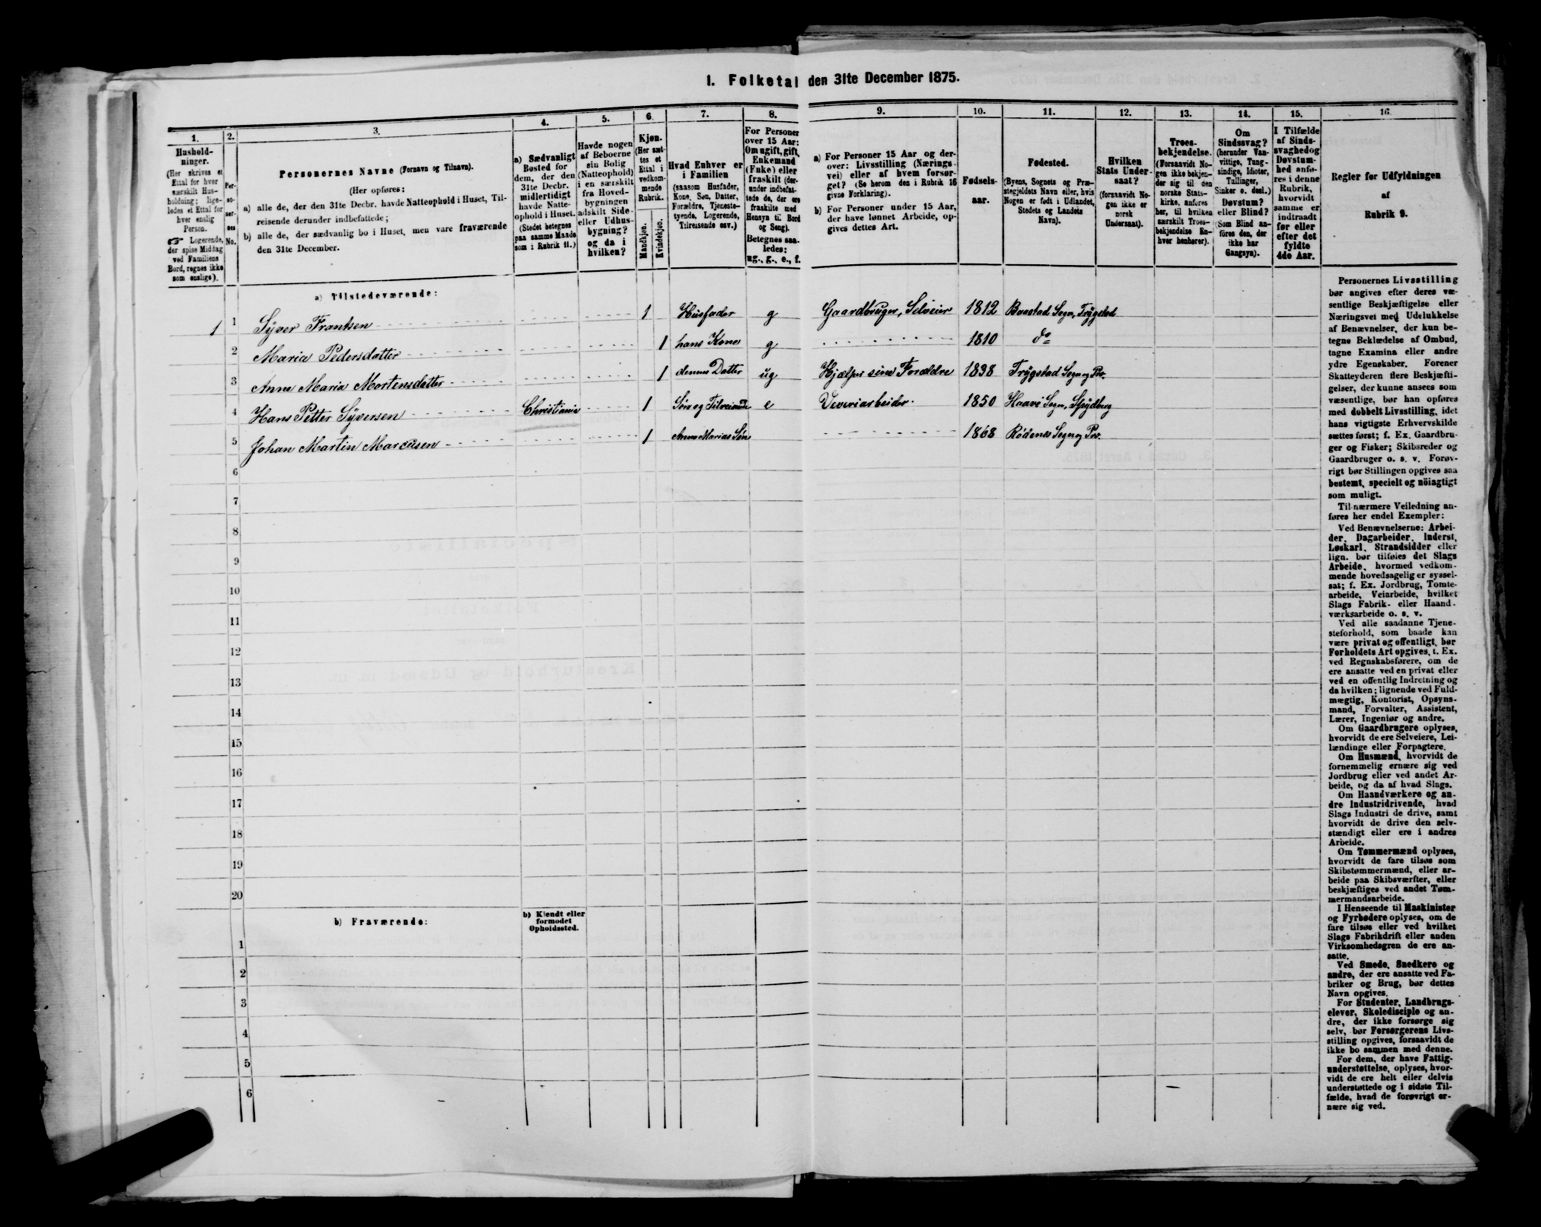 1. Folketal den 31te December 1875.
1. 2. 3. 4. 5. 6. 7. 8. 9. 10. 11. 12. 13. 14. 15. 16.
Hushold-
ninger.
(Her skrives et
Ettal for hver
særskilt Hus-
holdning; lige-
ledes et Ettal for
hver enslig
Person.
☞ Logerende,
der spise Middag
ved Familiens
Bord, regnes ikke
som enslige).
Per-
so-
ner-
nes
No.
Personernes Navne (Fornavn og Tilnavn).
(Her opføres:
a) alle de, der den 31te Decbr. havde Natteophold i Huset, Til-
reisende derunder indbefattede;
b) alle de, der sædvanlig bo i Huset, men vare fraværende
den 31te December.
a) Sædvanligt
Bosted for
dem, der den
31te Decbr.
midlertidigt
havde Natte-
ophold i Huset.
(Stedet betegnes
paa samme Maade
som i Rubrik 11.)
Havde nogen
af Beboerne
sin Bolig
(Natteophold)
i en særskilt
fra Hoved-
bygningen
adskilt Side-
eller Udhus-
bygning?
og da i
hvilken?
Kjøn.
(Her sæt-
tes et
Ettal i
vedkom-
mende
Rubrik.
Mandkjøn.
Kvindekjøn.
Hvad Enhver er
i Familien
(saasom Husfader,
Kone, Søn, Datter,
Forældre, Tjeneste-
tyende, Logerende,
Tilreisende osv.)
For Personer
over 15 Aar:
Om ugift, gift,
Enkemand
(Enke) eller
fraskilt (der-
under indbefat-
tede de, der ere
fraskilte med
Hensyn til Bord
og Seng).
Betegnes saa-
ledes:
ug., g., e., f.
a) For Personer 15 Aar og der-
over: Livsstilling (Nærings-
vei) eller af hvem forsør-
get? (Se herom den i Rubrik 16
givne Forklaring).
b) For Personer under 15 Aar,
der have lønnet Arbeide, op-
gives dettes Art.
Fødsels-
aar.
Fødested.
(Byens, Sognets og Præ-
stegjeldets Navn eller, hvis
Nogen er født i Udlandet,
Stedets og Landets
Navn).
Hvilken
Stats Under-
saat?
(forsaavidt No-
gen ikke er
norsk
Undersaat).
Troes-
bekjendelse.
(Forsaavidt No-
gen ikke bekjen-
der sig til den
norske Stats-
kirke, anføres
her, til hvilken
særskilt Troes-
bekjendelse En-
hver henhører).
Om
Sindssvag?
(herunder Van-
vittige, Tung-
sindige, Idioter,
Tullinger,
Sinker o. desl.)
Døvstum?
eller Blind?
(Som Blind an-
føres den, der
ikke har
Gangsyn).
I Tilfælde
af Sinds-
svaghed og
Døvstum-
hed anfø-
res i denne
Rubrik,
hvorvidt
samme er
indtraadt
før eller
efter det
fyldte
4de Aar.
Regler for Udfyldningen
af
Rubrik 9.
a) Tilstedeværende:
1 1 Syver Frantsen 1 Husfader g Gaardbruger, Selveier 1812 Baastad Sogn, Trygstad
2 Maria Pedersdatter 1 hans Kone g 1810 do
3 Anne Maria Mortensdatter 1 dennes Datter ug Hjælper sine Forældre 1838 Trygstad Sogn og Pr.
4 Hans Petter Syversen Christiania 1 Søn og Tilreisende e Veveriarbeider 1850 Haavi Sogn, Spydberg
5 Johan Martin Marcusen 1 Anne Marias Søn 1868 Rødenes Sogn og Pr.
6
7
8
9
10
11
12
13
14
15
16
17
18
19
20
b) Fraværende:
b) Kjendt eller
formodet
Opholdssted.
1
2
3
4
5
6
Personernes Livsstilling
bør angives efter deres væ-
sentlige Beskjæftigelse eller
Næringsvei med Udelukkelse
af Benævnelser, der kun be-
tegne Beklædelse af Ombud,
tagne Examina eller andre
ydre Egenskaber. Forener
Skatteyderen flere Beskjæfti-
gelser, der kunne ansees som
væsentlige, bør han opføres
med dobbelt Livsstilling, idet
hans vigtigste Erhvervskilde
sættes først; f. Ex. Gaardbru-
ger og Fisker; Skibsreder og
Gaardbruger o. s. v. Forøv-
rigt bør Stillingen opgives saa
bestemt, specielt og nöiagtigt
som muligt.
Til nærmere Veiledning an-
føres her endel Exempler:
Ved Benævnelserne: Arbei-
der, Dagarbeider, Inderst,
Løskarl, Strandsidder eller
lign. bør tilføies det Slags
Arbeide, hvormed vedkom-
mende hovedsagelig er syssel-
sat; f. Ex. Jordbrug, Tomte-
arbeide, Veiarbeide, hvilket
Slags Fabrik- eller Haand-
værksarbeide o. s. v.
Ved alle saadanne Tjene-
steforhold, som baade kan
være privat og offentligt, bør
Forholdets Art opgives, f. Ex.
ved Regnskabsførere, om de
ere ansatte ved en privat eller
ved en offentlig Indretning og
da hvilken; lignende ved Fuld-
mægtig, Kontorist, Opsyns-
mand, Forvalter, Assistent,
Lærer, Ingeniør og andre.
Om Gaardbrugere oplyses,
hvorvidt de ere Selveiere, Lei-
lændinge eller Forpagtere.
Om Husmænd, hvorvidt de
fornemmelig ernære sig ved
Jordbrug eller ved andet Ar-
beide, og da af hvad Slags.
Om Haandværkere og an-
dre Industridrivende, hvad
Slags Industri de drive, samt
hvorvidt de drive den selv-
stændigt eller ere i andres
Arbeide.
Om Tømmermænd oplyses,
hvorvidt de fare tilsøs som
Skibstømmermænd, eller ar-
beide paa Skibsværfter, eller
beskjæftiges ved andet Tøm-
mermandsarbeide.
I Henseende til Maskinister
og Fyrbødere oplyses, om de
fare tilsøs eller ved hvilket
Slags Fabrikdrift eller anden
Virksomhedsgren de ere an-
satte.
Ved Smede, Snedkere og
andre, der ere ansatte ved Fa-
briker og Brug, bør dettes
Navn opgives.
For Studenter, Landbrugs-
elever, Skoledisciple og an-
dre, der ikke forsørge sig
selv, bør Forsørgerens Livs-
stilling opgives, forsaavidt de
ikke bo sammen med denne.
For dem, der have Fattig-
understøttelse, oplyses, hvor-
vidt de ere helt eller delvis
understøttede og i sidste Til-
fælde, hvad de forøvrigt er-
nære sig ved.